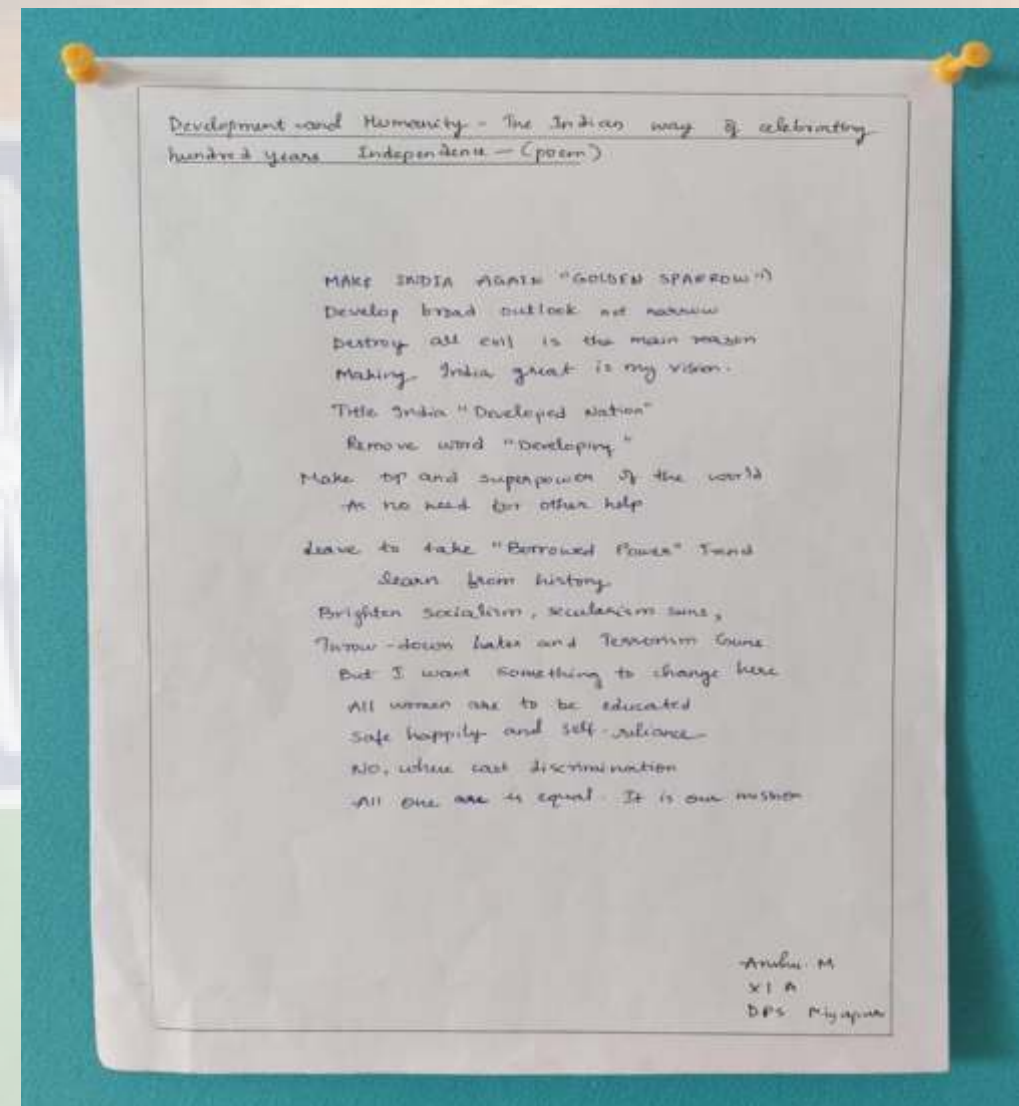 Development and Humanity - The Indian way of celebrating
hundred years Independence - (poem)
MAKE INDIA AGAIN "GOLDEN SPARROW")
Develop broad outlook not narrow
Destroy all evil is the main reason
Making India great is my vision.
Title India "Developed Nation"
Remove word "Developing"
Make top and superpower of the world
As no need for other help
Leave to take "Borrowed Power"
learn from history
Brighten socialism, secularism suns,
Throw-down hates and Terrorism Guns
But I want something to change here
All women are to be educated
safe happily and self-reliance
No, where cast discrimination
All one are is equal. It is our mission
M
XI A
DPS Miyapur